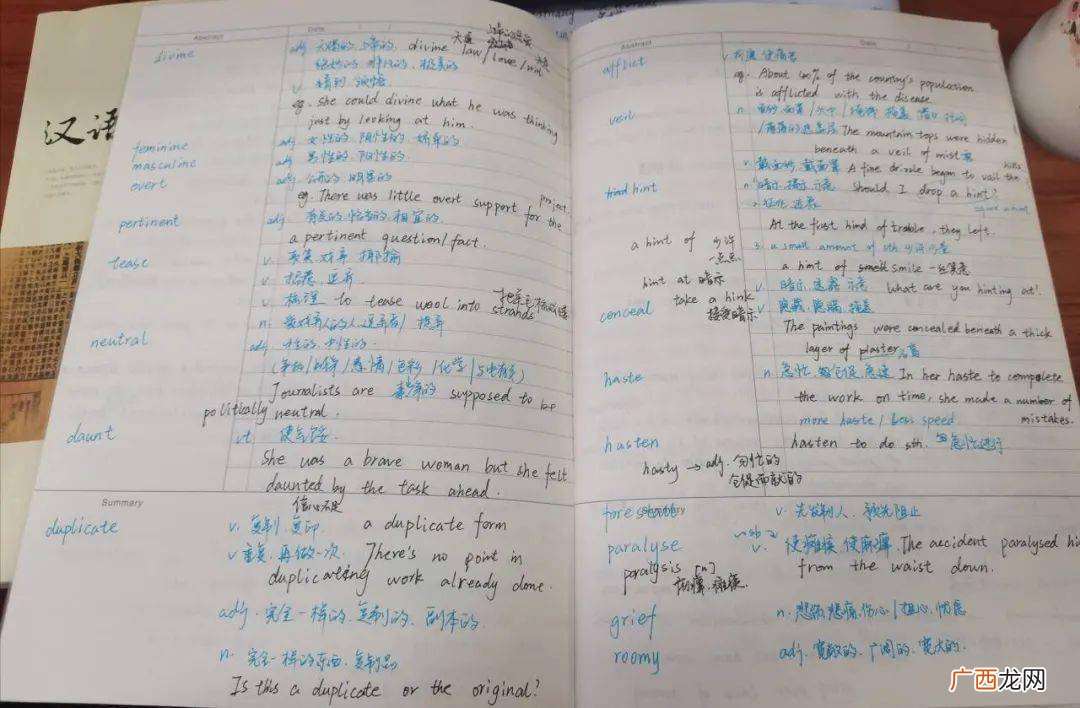 汉语
Abstract
Date
divine
adj. 天赐的, 上帝的. divine law/love/will
绝妙的 非凡的. 极美的
v 猜到 领悟
eg. She could divine what he was thinking
just by looking at him.
feminine
adj 女性的 阴性的 娇柔的
masculine
adj 男性的. 阳性的
overt
adj. 公开的. 明显的
eg There was little overt support for the project.
pertinent
adj 有关的. 恰当的. 相宜的.
a pertinent question/fact.
tease
v. 取笑. 戏弄. 揶揄
v 招惹. 逗弄
v 梳理 to tease wool into strands
n.
neutral
adj
化学
Journalists are supposed to be
politically neutral.
daunt
vt 使气馁.
She was a brave woman but she felt
daunted by the task ahead.
信心不足
Summary
duplicate
v. 复制. 复印. a duplicate form
v 重复. 再做一次. There's no point in
duplicating work already done.
adj. 完全一样的. 复制的. 副本的.
n. 完全一样的东西. 复制品
Is this a duplicate or the original?
Abstract
Date
afflict
v 折磨. 使痛苦
eg. About 40% of the country's population
is afflicted with the disease
veil
n.
The mountain tops were hidden
beneath a veil of mist
v. 戴面纱. 戴面罩 A fine drizzle began to vail the hills
hint
n. 暗示. 提示. 示意 Should I drop a hint?
At the first hind of trouble, they left.
a hint of 少许
一点点
3. a small amount of sth 少许 少量
a hint of smile 一丝笑意
hint at 暗示
v. 暗示. 透露. 示意 What are you hinting at!
take a hink
接受暗示
conceal
v 隐藏. 隐瞒. 掩盖
The paintings were concealed beneath a thick
layer of plaster
haste
n. 急忙. In her haste to complete
the work on time, she made a number of
mistakes.
more haste / Less speed
hasten
hasten to do sth. 急忙进行
hasty → adj. 匆忙的
仓促而就的
Summary
v. 先发制人. 预先阻止
paralyse
v. 使瘫痪. 使麻痹. The accident paralysed hi
from the waist down.
paralysis [n]
麻痹. 瘫痪.
grief
n. 悲伤. 悲痛. 伤心 / 担心. 忧虑
roomy
adj. 宽敞的. 广阔的. 宽大的.
广西龙网